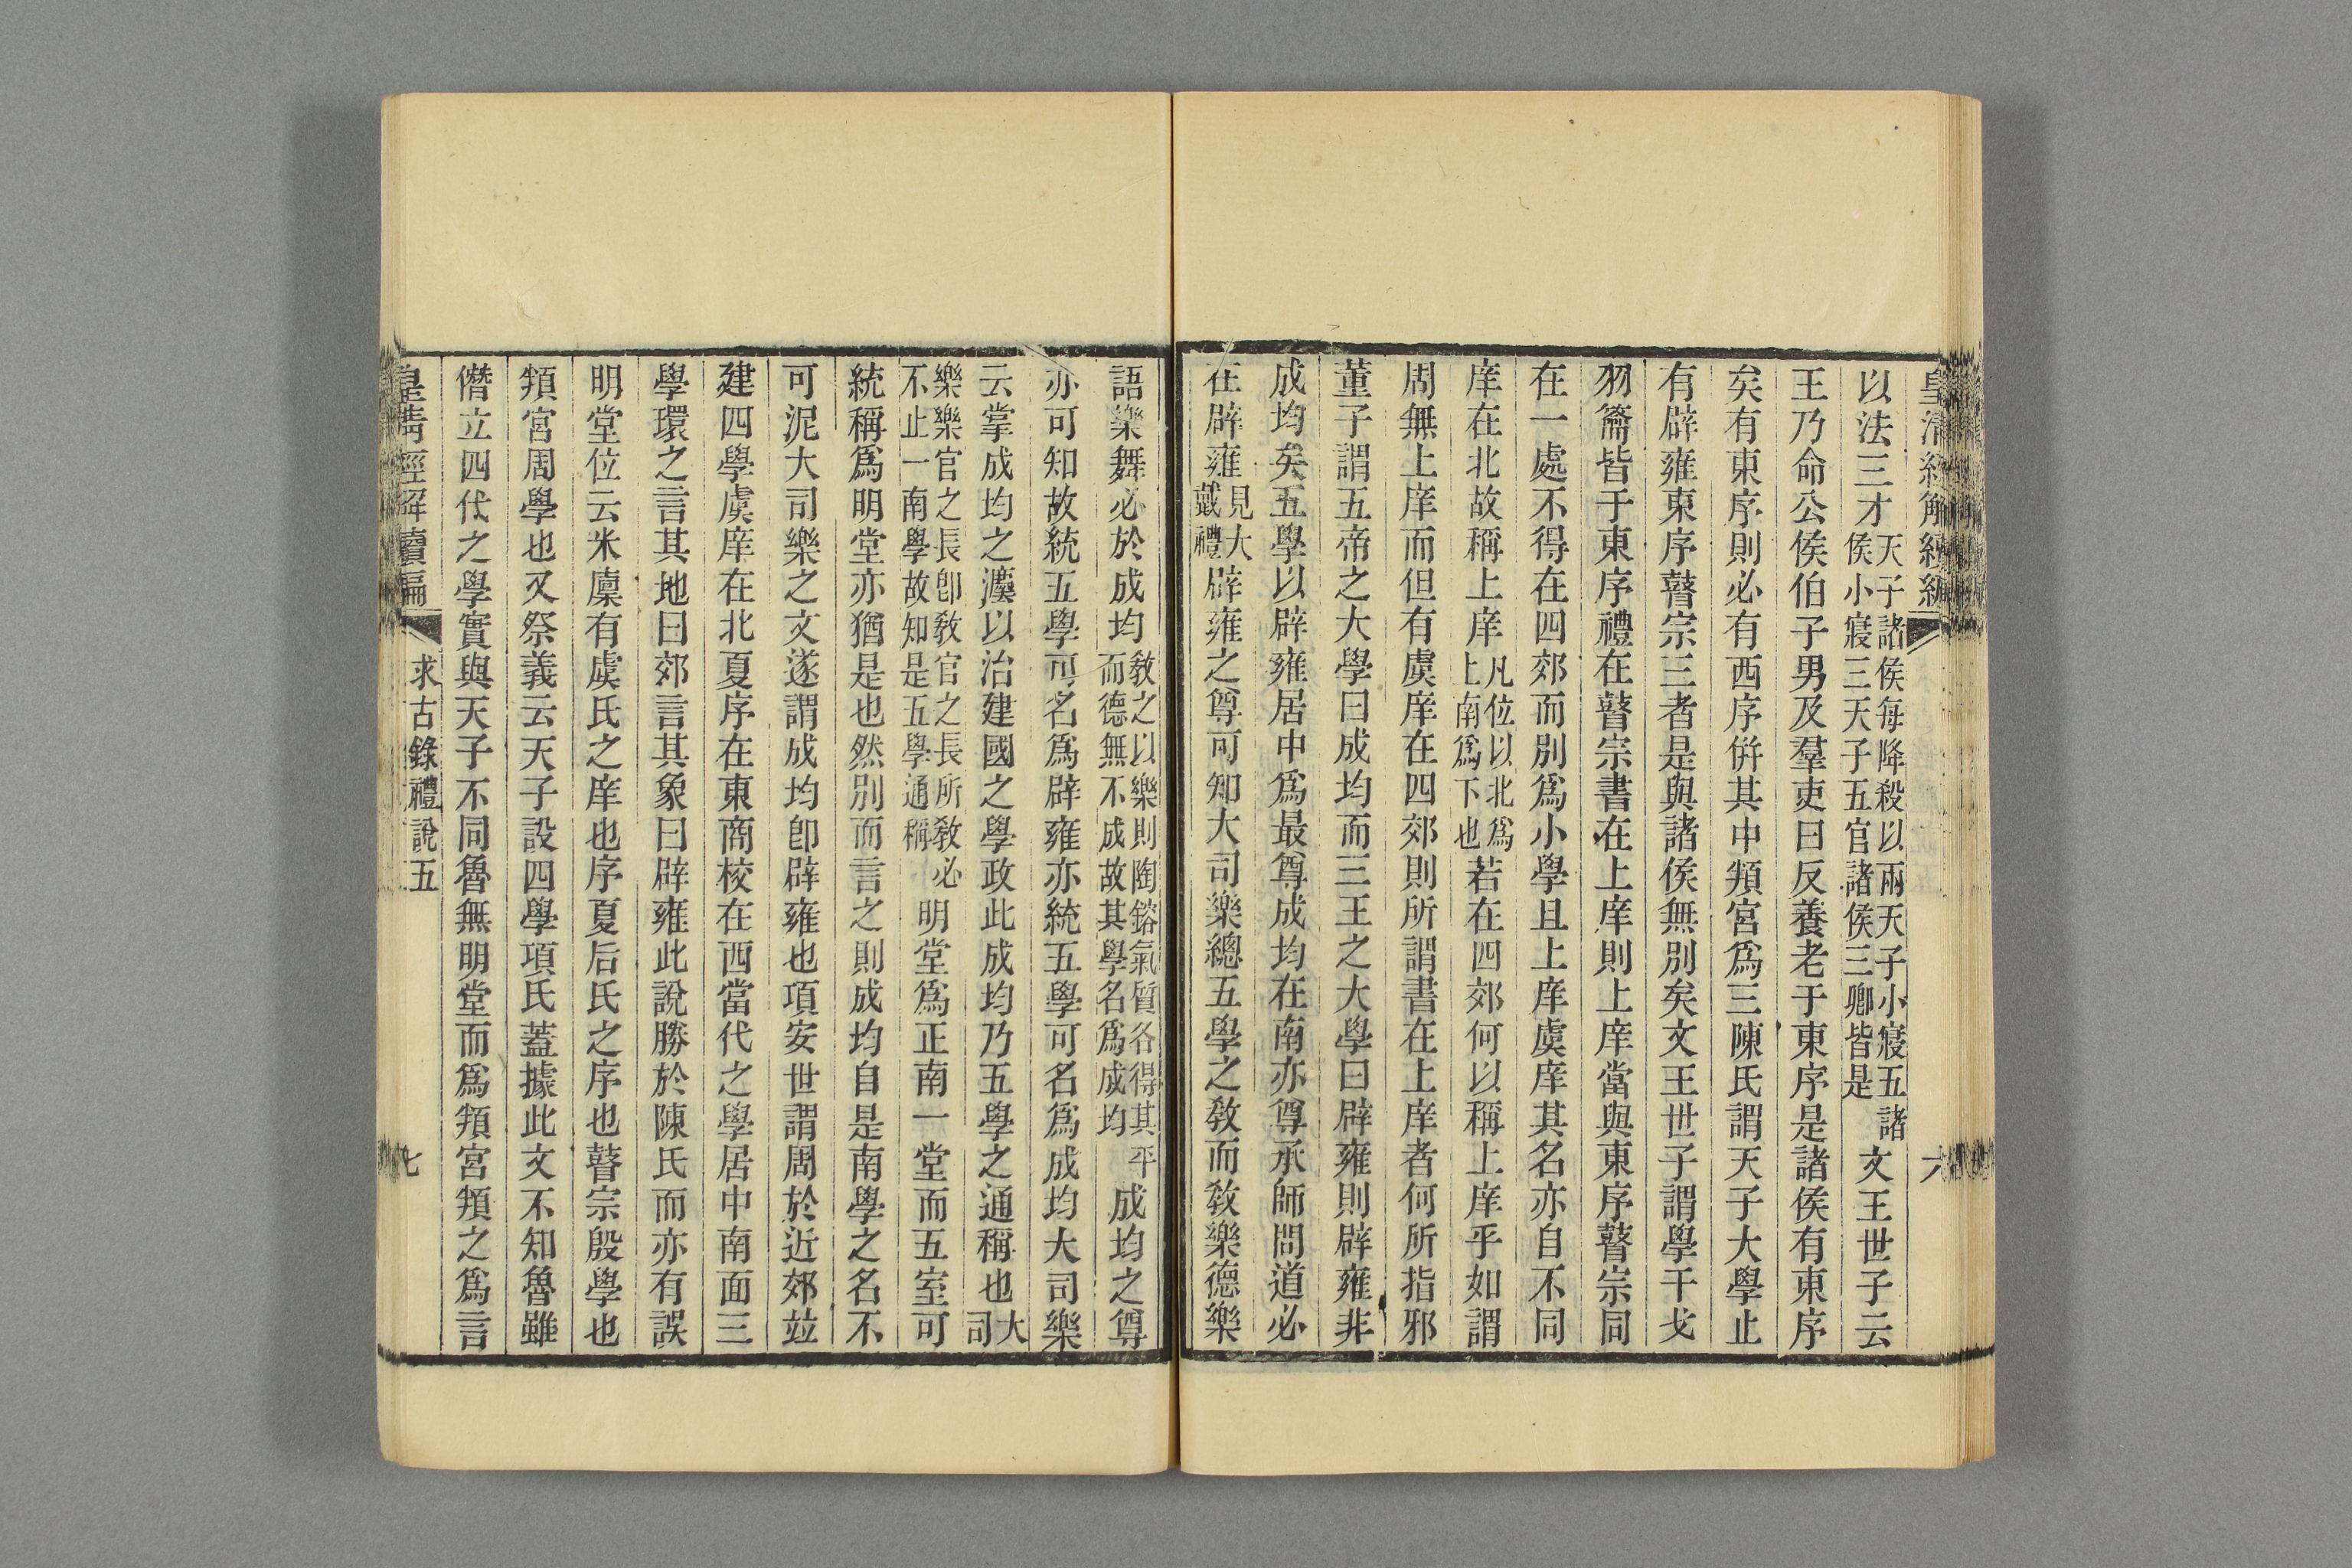 皇清經解續編 六
以法三才天子諸侯每降殺以兩天子小寢五諸侯小寢三天子五官諸侯三卿皆是文王世子云
王乃命公侯伯子男及羣吏曰反養老于東序是諸侯有東序
矣有東序則必有西序併其中頖宮爲三陳氏謂天子大學止
有辟雍東序瞽宗三者是與諸侯無別矣文王世子謂學干戈
羽籥皆于東序禮在瞽宗書在上庠則上庠當與東序瞽宗同
在一處不得在四郊而別爲小學且上庠虞庠其名亦自不同
庠在北故稱上庠凡位以北爲上南爲下也若在四郊何以稱上庠乎如謂
周無上庠而但有虞庠在四郊則所謂書在上庠者何所指邪
董子謂五帝之大學曰成均而三王之大學曰辟雍則辟雍非
成均矣五學以辟雍居中爲最尊成均在南亦尊承師問道必
在辟雍見大戴禮辟雍之尊可知大司樂總五學之敎而敎樂德樂
語樂舞必於成均敎之以樂則陶鎔氣質各得其平而德無不成故其學名爲成均成均之尊
亦可知故統五學可名爲辟雍亦統五學可名爲成均大司樂
云掌成均之灋以治建國之學政此成均乃五學之通稱也大司
樂樂官之長卽敎官之長所敎必不止一南學故知是五學通稱明堂爲正南一堂而五室可
統稱爲明堂亦猶是也然別而言之則成均自是南學之名不
可泥大司樂之文遂謂成均卽辟雍也項安世謂周於近郊竝
建四學虞庠在北夏序在東商校在西當代之學居中南面三
學環之言其地曰郊言其象曰辟雍此說勝於陳氏而亦有誤
明堂位云米廩有虞氏之庠也序夏后氏之序也瞽宗殷學也
頖宮周學也又祭義云天子設四學項氏蓋據此文不知魯雖
僭立四代之學實與天子不同魯無明堂而爲頖宮頖之爲言
皇清經解續編 求古錄禮說五 七